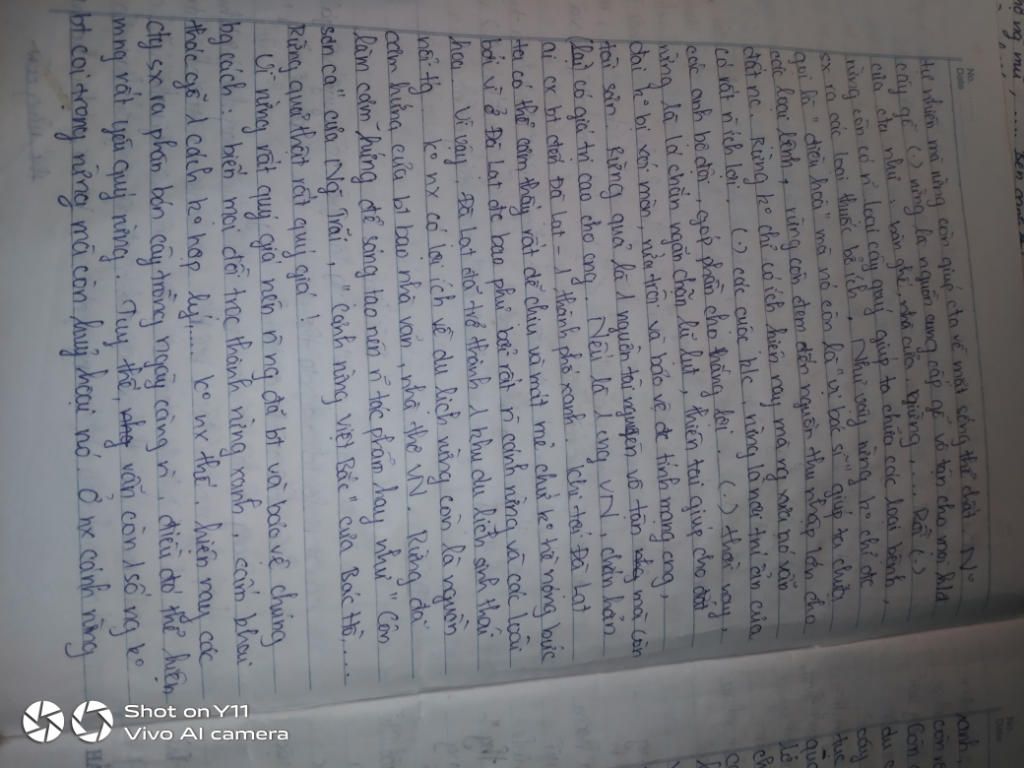 thế nhiên mà rừng còn giúp cta về mặt sống thế đời. N°
cây gỗ (.) rừng là nguồn cung cấp gỗ vô tận cho mọi
của cta như: bàn ghế, nhà cửa, giường, ...
rừng còn có n loại cây quý giúp ta chữa các loại bệnh,
sx ra các loại thuốc bổ ích. Như vậy rừng k° chỉ đc
gọi là "điều hoà" mà nó còn là "vị bác sĩ" giúp ta chữa
các loại bệnh, rừng còn đem đến nguồn thu nhập lớn cho
đất nc. Rừng k° chỉ có ích hiện nay mà ngày xưa nó vẫn
có rất n ích lợi. (.) các cuộc k/c, rừng là nơi trú ẩn của
các anh bộ đội, góp phần cho thắng lợi. (.) thời nay,
rừng là lá chắn ngăn chặn lũ lụt, thiên tai giúp cho đất
đai k° bị xói mòn, rửa trôi và bảo vệ đc tính mạng con,
tài sản. Rừng quả là 1 nguồn tài nguyên vô tận mà còn
(lại) có giá trị cao cho cng. Nếu là 1 cng VN, chắn hẳn
ai cx bt đến Đà Lạt - 1 thành phố xanh. Khi tới Đà Lạt
ta có thể cảm thấy rất dễ chịu và mát mẻ chứ k° hề nóng bức
bởi vì ở Đà Lạt đc bao phủ bởi rất n cánh rừng và các loài
hoa. Vì vậy, Đà Lạt đã trở thành 1 khu du lịch sinh thái
nổi tiếng. K° nx có lợi ích về du lịch rừng còn là nguồn
cảm hứng của bt bao nhà văn, nhà thơ VN. Rừng đã
làm cảm hứng để sáng tạo nên n tác phẩm hay như "Côn
sơn ca" của Ng Trãi, "Cảnh rừng Việt Bắc" của Bác Hồ,...
Rừng quả thật rất quý giá!
Vì rừng rất quý giá nên n ng đã bt và bảo vệ chúng
bg cách: biến mọi đồi trọc thành rừng xanh, cấm khai
thác gỗ 1 cách k° hợp lý,... K° nx thế, hiện nay các
cty sx ra phân bón cây trồng ngày càng n, điều đó thể hiện
mng rất yêu quý rừng. Tuy thế, vẫn còn 1 số ng k°
bt coi trọng rừng mà còn huỷ hoại nó. Ở nx cánh rừng
Shot on Y11
Vivo AI camera